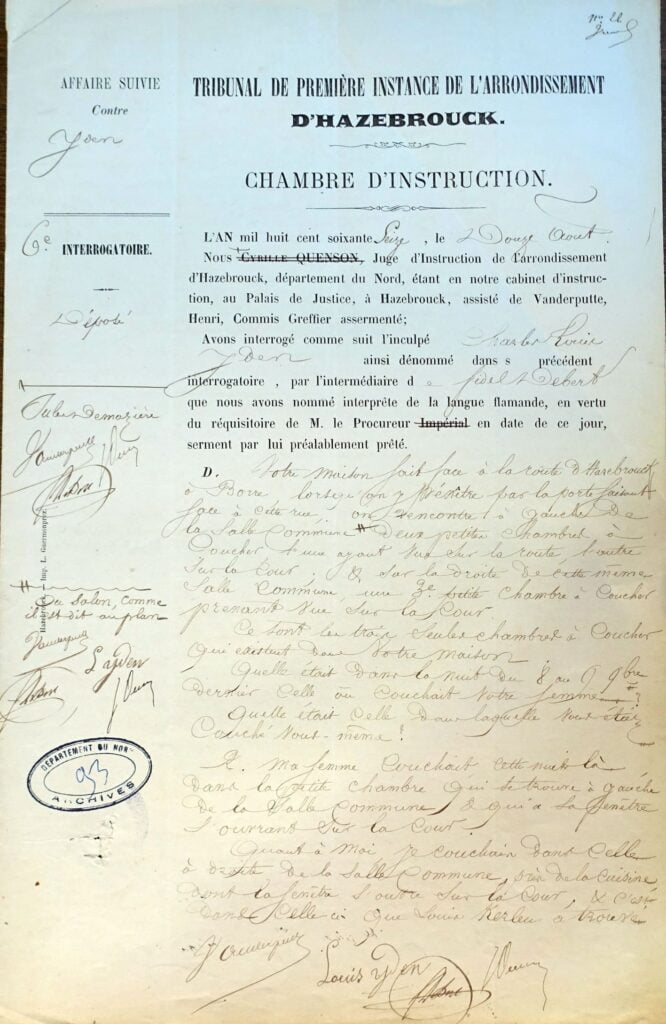 AFFAIRE SUIVIE
Contre
Yden
6e INTERROGATOIRE.
Déposé
TRIBUNAL DE PREMIÈRE INSTANCE DE L'ARRONDISSEMENT
D'HAZEBROUCK.
CHAMBRE D'INSTRUCTION.
L'AN mil huit cent soixante Seize, le Douze Aout.
Nous CYRILLE QUENSON, Juge d'Instruction de l'arrondissement
d'Hazebrouck, département du Nord, étant en notre cabinet d'instruc-
tion, au Palais de Justice, à Hazebrouck, assisté de Vanderputte,
Henri, Commis Greffier assermenté;
Avons interrogé comme suit l'inculpé Charles Louis
Yden ainsi dénommé dans s précédent
interrogatoire, par l'intermédiaire de fidel Debert
que nous avons nommé interprète de la langue flamande, en vertu
du réquisitoire de M. le Procureur Impérial en date de ce jour,
serment par lui préalablement prêté.
D. Votre maison fait face à la route d'Hazebrouck
à Borre, lorsqu'on y pénètre par la porte faisant
face à cette rue, on rencontre à gauche de
la Salle Commune # Deux petite chambres à
Coucher l'une ayant vue sur la route, l'autre
sur la Cour, & sur la droite de cette même
Salle Commune, une 3e petite chambre à Coucher
prenant vue sur la Cour.
Ce sont les trois seules chambres à Coucher
qui existent dans votre maison.
Quelle était dans la nuit du 8 au 9 9bre
dernier celle où couchait votre femme?
Quelle était celle dans laquelle vous étiez
Couché vous-même?
R. ma femme couchait cette nuit là
dans la petite chambre qui se trouve à gauche
de la Salle commune, & qui a sa fenêtre
s'ouvrant sur la cour.
Quant à moi je couchais dans celle
à droite de la Salle Commune, près de la cuisine
dont la fenêtre s'ouvre sur la Cour, & c'est
dans celle ci que Louis Kerleu a trouvé
Louis Yden
Jules Demazière
# Ou salon, comme
il est dit au plan
L yden
Hazebrouck, Imp. L. Guermonprez
DÉPARTEMENT DU NORD
93
ARCHIVES